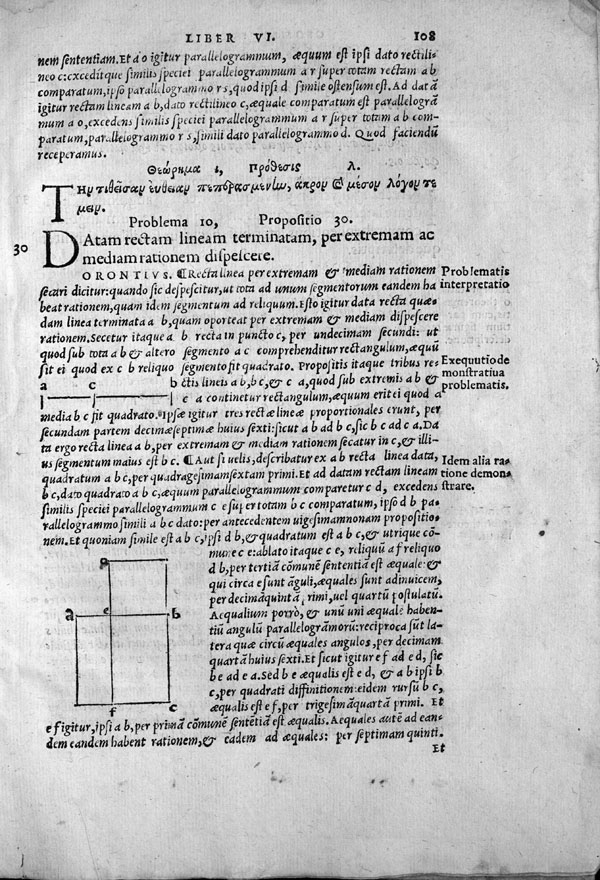 LIBER VI. 108
nem sententiam. Et a o igitur parallelogrammum, æquum est ipsi dato rectili-
neo c: exceditque similis speciei parallelogrammum a r super totam rectam a b
comparatum, ipso parallelogrammo r s, quod ipsi d simile ostensum est. Ad datā
igitur rectam lineam a b, dato rectilineo c, æquale comparatum est parallelogrā
mum a o, excedens similis speciei parallelogrammum a r super totam a b com-
paratum, parallelogrammo r s, simili dato parallelogrammo d. Quod faciendū
receperamus.
Θεώρημα ι, Πρόθεσις λ.
Τὴν
Problema 10, Propositio 30.
30 DAtam rectam lineam terminatam, per extremam ac
mediam rationem dispescere.
ORONTIVS. ¶Recta linea per extremam & mediam rationem Problematis
secari dicitur: quando sic despescitur, ut tota ad unum segmentorum eandem ha interpretatio
beat rationem, quam idem segmentum ad reliquum. Esto igitur data recta quæ-
dam linea terminata a b, quam oporteat per extremam & mediam dispescere
rationem. Secetur itaque a b recta in puncto c, per undecimam secundi: ut
quod sub tota a b & altero segmento a c comprehenditur rectangulum, æquū
sit ei quod ex c b reliquo segmento fit quadrato. Propositis itaque tribus re- Exequutio de
a c b ctis lineis a b, b c, & c a, quod sub extremis a b & monstratiua
c a continetur rectangulum, æquum erit ei quod a problematis.
media b c fit quadrato. Ipsæ igitur tres rectæ lineæ proportionales erunt, per
secundam partem decimæseptimæ huius sexti: sicut a b ad b c, sic b c ad c a. Da
ta ergo recta linea a b, per extremam & mediam rationem secatur in c, & illi-
us segmentum maius est b c. ¶Aut si uelis, describatur ex a b recta linea data, Idem alia ra-
quadratum a b c, per quadragesimamsextam primi. Et ad datam rectam lineam tione demon-
b c, dato quadrato a b c, æquum parallelogrammum comparetur c d, excedens strare.
similis speciei parallelogrammum c e super totam b c comparatum, ipso d b pa-
rallelogrammo simili a b c dato: per antecedentem uigesimamnonam propositio-
nem. Et quoniam simile est a b c, ipsi d b, & quadratum est a b c, & utrique cō-
mune c e: ablato itaque c e, reliquū a f reliquo
d b, per tertiā cōmunē sententiā est æquale: &
qui circa e sunt āguli, æquales sunt adinuicem,
per decimāquintā primi, uel quartū postulatū.
Aequalium porrò, & unū uni æquale haben-
tiū angulū parallelogrāmorū: reciproca sūt la-
tera quæ circū æquales angulos, per decimam
quartā huius sexti. Et sicut igitur e f ad e d, sic
b e ad e a. Sed b e æqualis est e d, & a b ipsi b
c, per quadrati diffinitionem: eidem rursū b c,
æqualis est e f, per trigesimāquartā primi. Et
a e b
f c
e f igitur, ipsi a b, per primā cōmunē sentētiā est æqualis. Aequales autē ad ean-
dem eandem habent rationem, & eadem ad æquales: per septimam quinti.
Et